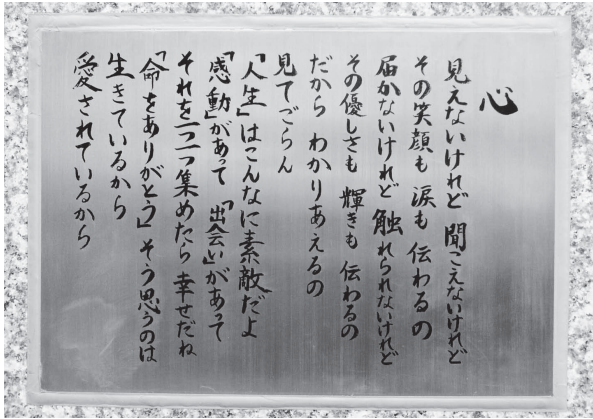 心
見えないけれど 聞こえないけれど
その笑顔も 涙も 伝わるの
届かないけれど 触れられないけれど
その優しさも 輝きも 伝わるの
だから わかりあえるの
見てごらん
「人生」はこんなに素敵だよ
「感動」があって 「出会い」があって
それを一つ一つ集めたら 幸せだね
「命をありがとう」そう思うのは
生きているから
愛されているから